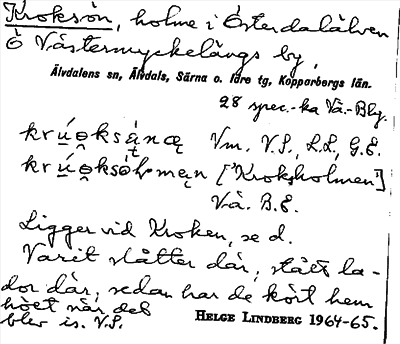 Kroksön, holme i Österdalälven
Ö Västermyckelängs by,
Älvdalens sn, Älvdals, Särna o. Idre tg, Kopparbergs län.
28 spec.-ka Vä.-Blg.
Vm. V.S., L.L., G.E.
["Kroksholmen"]
Vä. B.E.
Ligger vid Kroken, se d.
Varit slåtter där, stått la-
dor där, sedan har de kört hem
höet när det
blev is. V.S.
HELGE LINDBERG 1964-65.